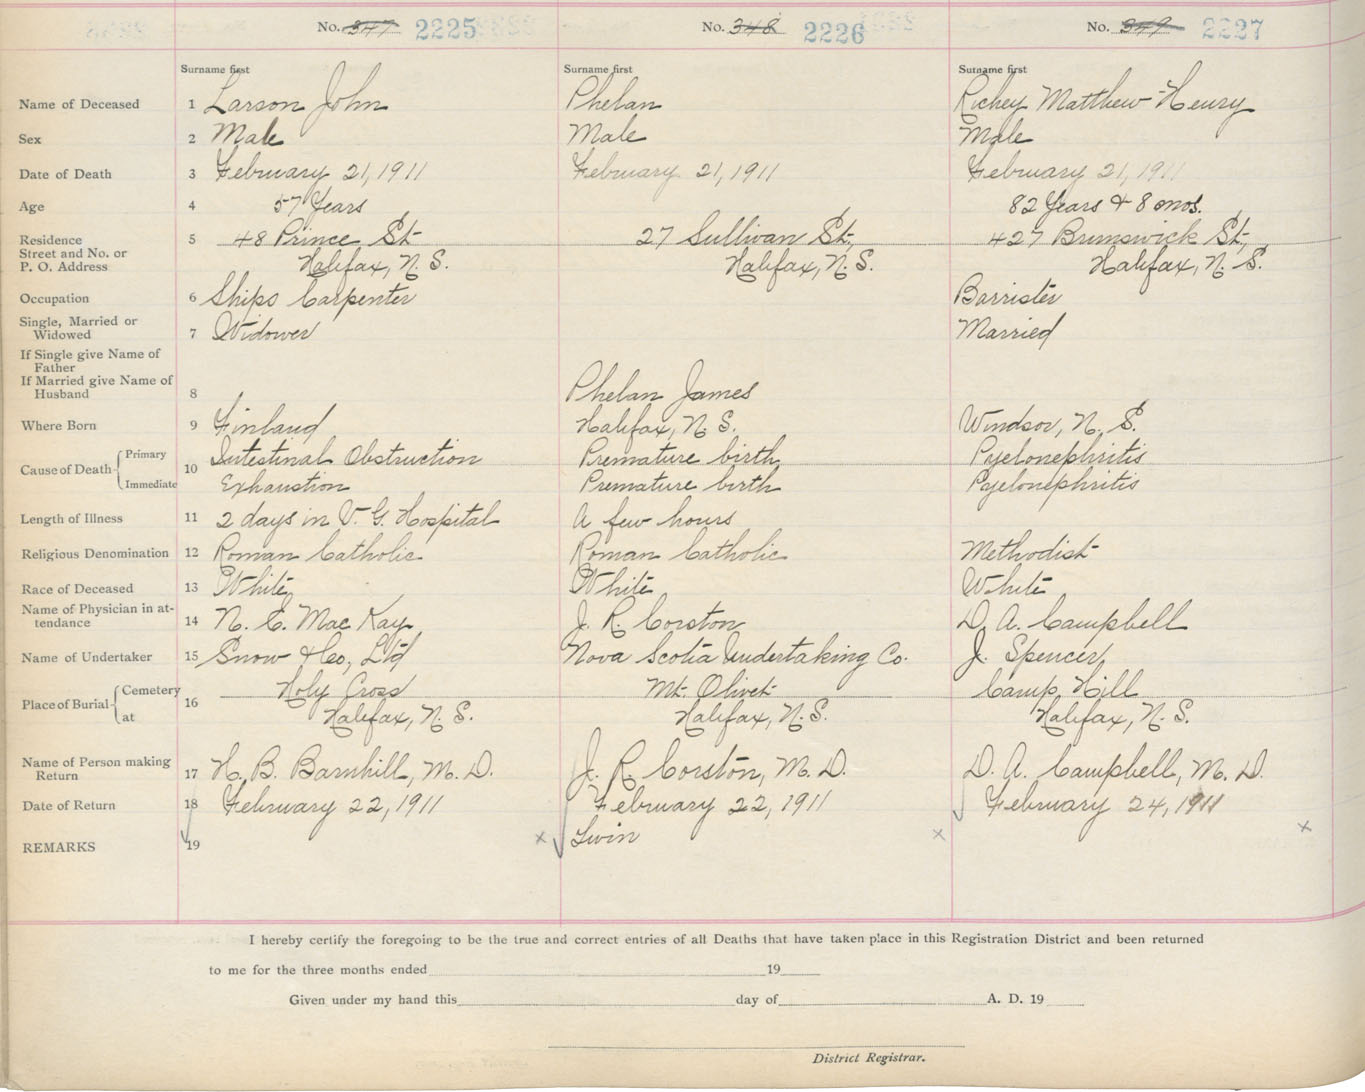 No. 347 2225 No. 348 2226 No. 349 2227
Surname first Surname first Surname first
Name of Deceased 1 Larson John Phelan Richey Matthew Henry
Sex 2 Male Male Male
Date of Death 3 February 21, 1911 February 21, 1911 February 21, 1911
Age 4 57 Years 82 Years & 8 mos.
Residence 5 48 Prince St 27 Sullivan St., 427 Brunswick St.,
Street and No. or
P. O. Address Halifax, N. S. Halifax, N. S. Halifax, N. S.
Occupation 6 Ships Carpenter Barrister
Single, Married or
Widowed 7 Widower Married
If Single give Name of
Father
If Married give Name of
Husband 8 Phelan James
Where Born 9 Finland Halifax, N. S. Windsor, N. S.
Cause of Death 10 Primary Intestinal Obstruction Premature birth Pyelonephritis
Immediate Exhaustion Premature birth Pyelonephritis
Length of Illness 11 2 days in V. G. Hospital A few hours
Religious Denomination 12 Roman Catholic Roman Catholic Methodist
Race of Deceased 13 White White White
Name of Physician in at-
tendance 14 N. E. MacKay J. R. Corston D. A. Campbell
Name of Undertaker 15 Snow & Co, Ltd Nova Scotia Undertaking Co. J. Spencer
Place of Burial 16 Cemetery Holy Cross Mt. Olivet Camp Hill
at Halifax, N. S. Halifax, N. S. Halifax, N. S.
Name of Person making
Return 17 H. B. Barnhill, M. D. J. R. Corston, M. D. D. A. Campbell, M. D.
Date of Return 18 February 22, 1911 February 22, 1911 February 24, 1911
REMARKS 19 x Twin x x
I hereby certify the foregoing to be the true and correct entries of all Deaths that have taken place in this Registration District and been returned
to me for the three months ended 19
Given under my hand this day of A. D. 19
District Registrar.